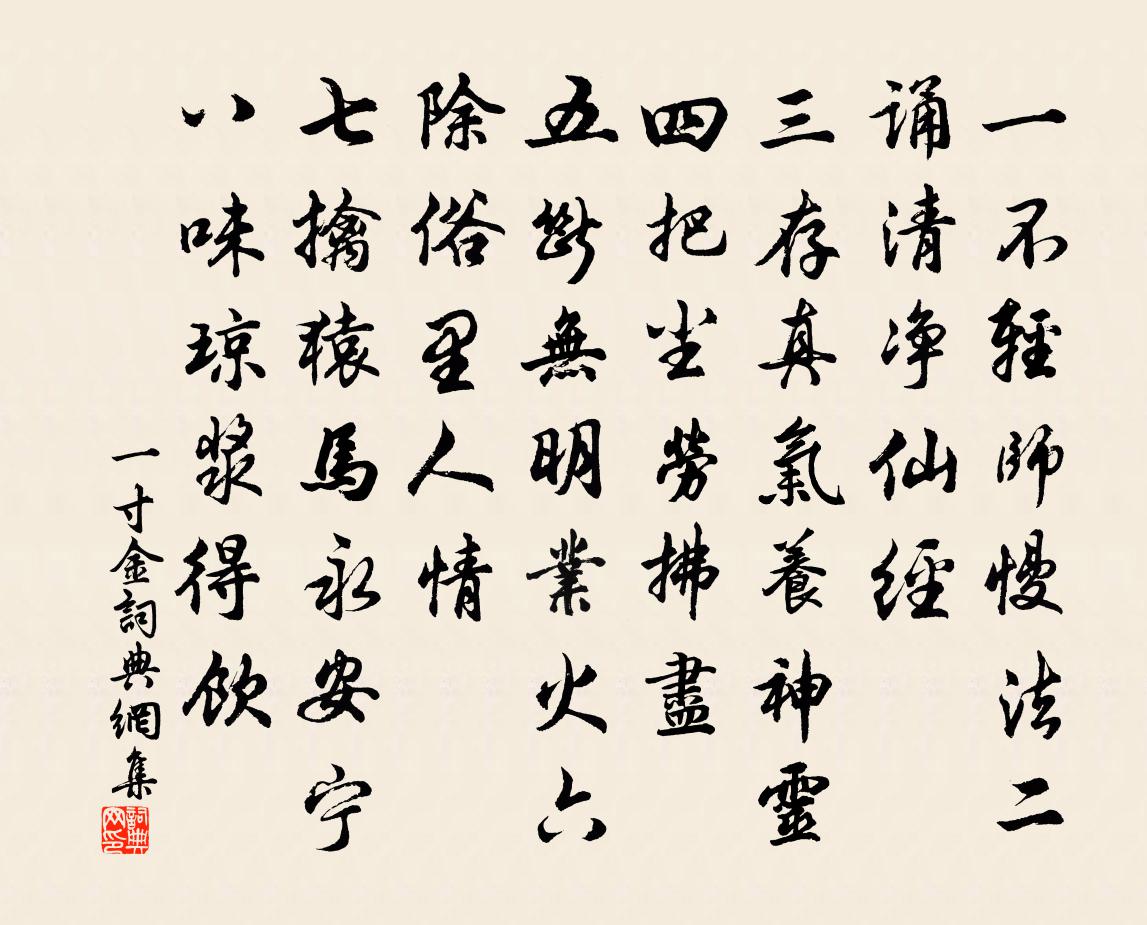 一不輕師慢法二
誦清净仙經
三存真氣養神靈
四把尘勞拂盡
五斷無明業火六
除俗里人情
七擒猿馬永安宁
八味琼漿得飲
一寸金詞典網集
詞典
网印